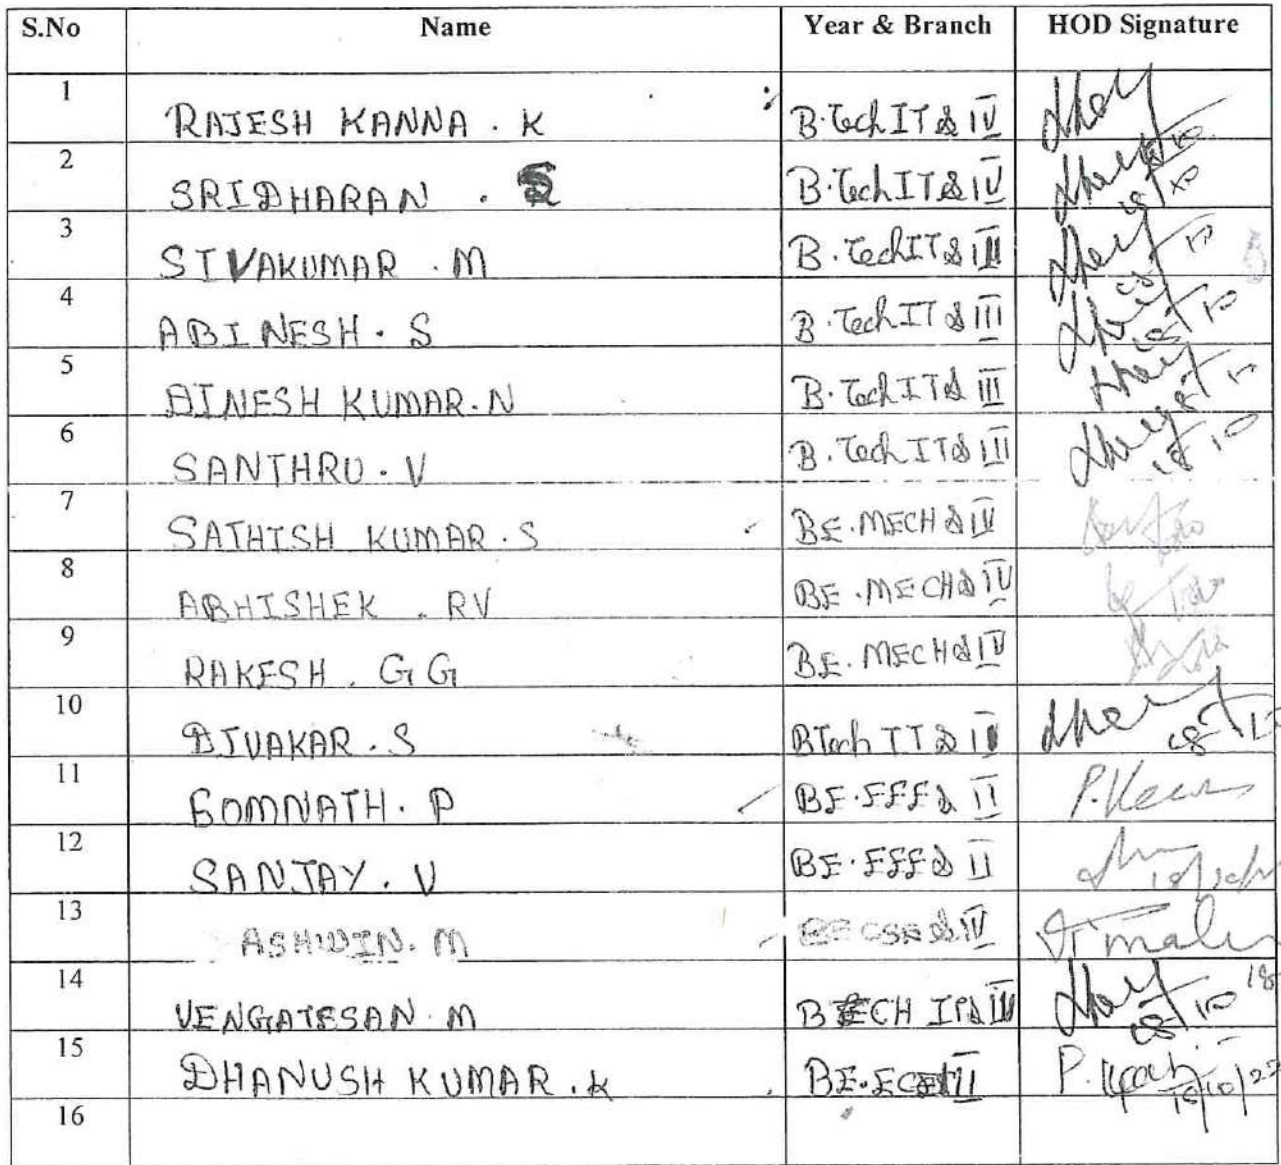 S.No Name Year & Branch HOD Signature
1 RAJESH KANNA . K B.Tech IT & IV
2 SRIDHARAN . S B.Tech IT & IV
3 SIVAKUMAR . M B.Tech IT & III
4 ABINESH . S B.Tech IT & III
5 DINESH KUMAR . N B.Tech IT & III
6 SANTHRU . V B.Tech IT & III
7 SATHISH KUMAR . S BE.MECH & IV
8 ABHISHEK . RV BE.MECH & IV
9 RAKESH . G G BE.MECH & IV
10 DIVAKAR . S BTech IT & II
11 GOMNATH . P BE.EEE & II
12 SANJAY . V BE.EEE & II
13 ASHWIN . M BE CSE & IV
14 VENGATESAN . M BTECH IT & III
15 DHANUSH KUMAR . K BE.ECE II
16